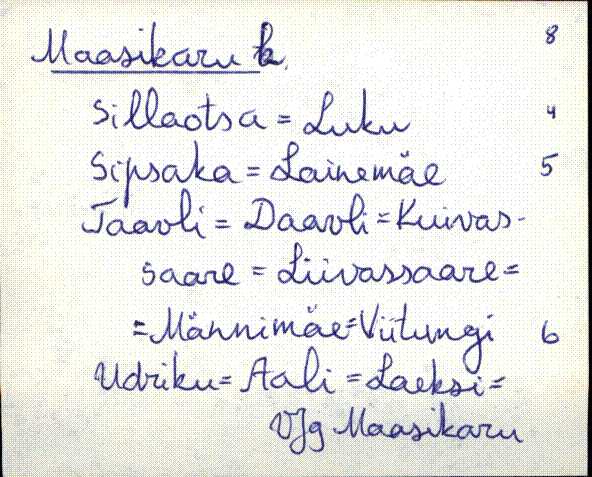 Maasikaru k. 8
Sillaotsa = Luku 4
Sipsaka = Lainemäe 5
Taavli = Daavli = Kuivas-
saare = Liivassaare =
= Männimäe = Viitungi 6
Udriku = Aali = Laeksi =
Vjg Maasikaru